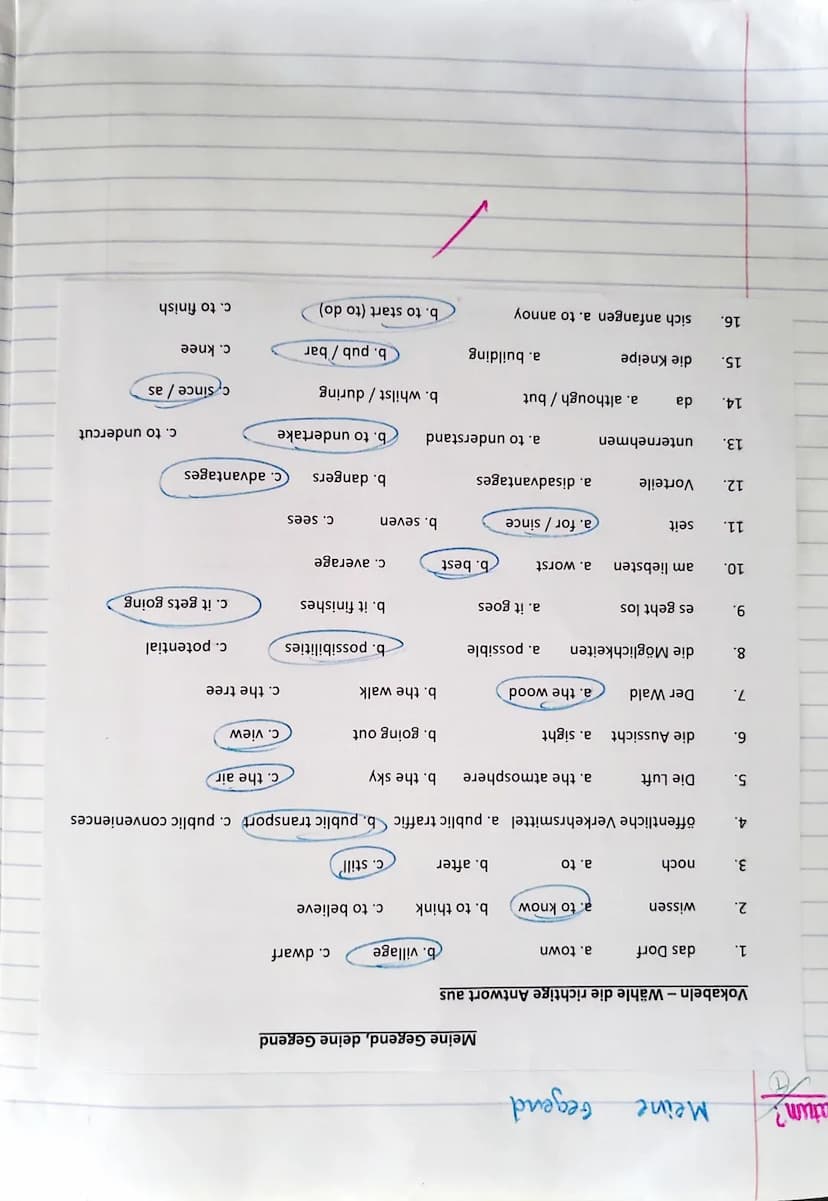 Meine Gegend
Meine Gegend, deine Gegend
Vokabeln – Wähle die richtige Antwort aus
1. das Dorf a. town b. village c. dwarf
2. wissen a. to know b. to think c. to believe
3. noch a. to b. after c. still
4. öffentliche Verkehrsmittel a. public traffic b. public transport c. public conveniences
5. Die Luft a. the atmosphere b. the sky c. the air
6. die Aussicht a. sight b. going out c. view
7. Der Wald a. the wood b. the walk c. the tree
8. die Möglichkeiten a. possible b. possibilities c. potential
9. es geht los a. it goes b. it finishes c. it gets going
10. am liebsten a. worst b. best c. average
11. seit a. for / since b. seven c. sees
12. Vorteile a. disadvantages b. dangers c. advantages
13. unternehmen a. to understand b. to undertake c. to undercut
14. da a. although / but b. whilst / during c. since / as
15. die Kneipe a. building b. pub / bar c. knee
16. sich anfangen a. to annoy b. to start (to do) c. to finish